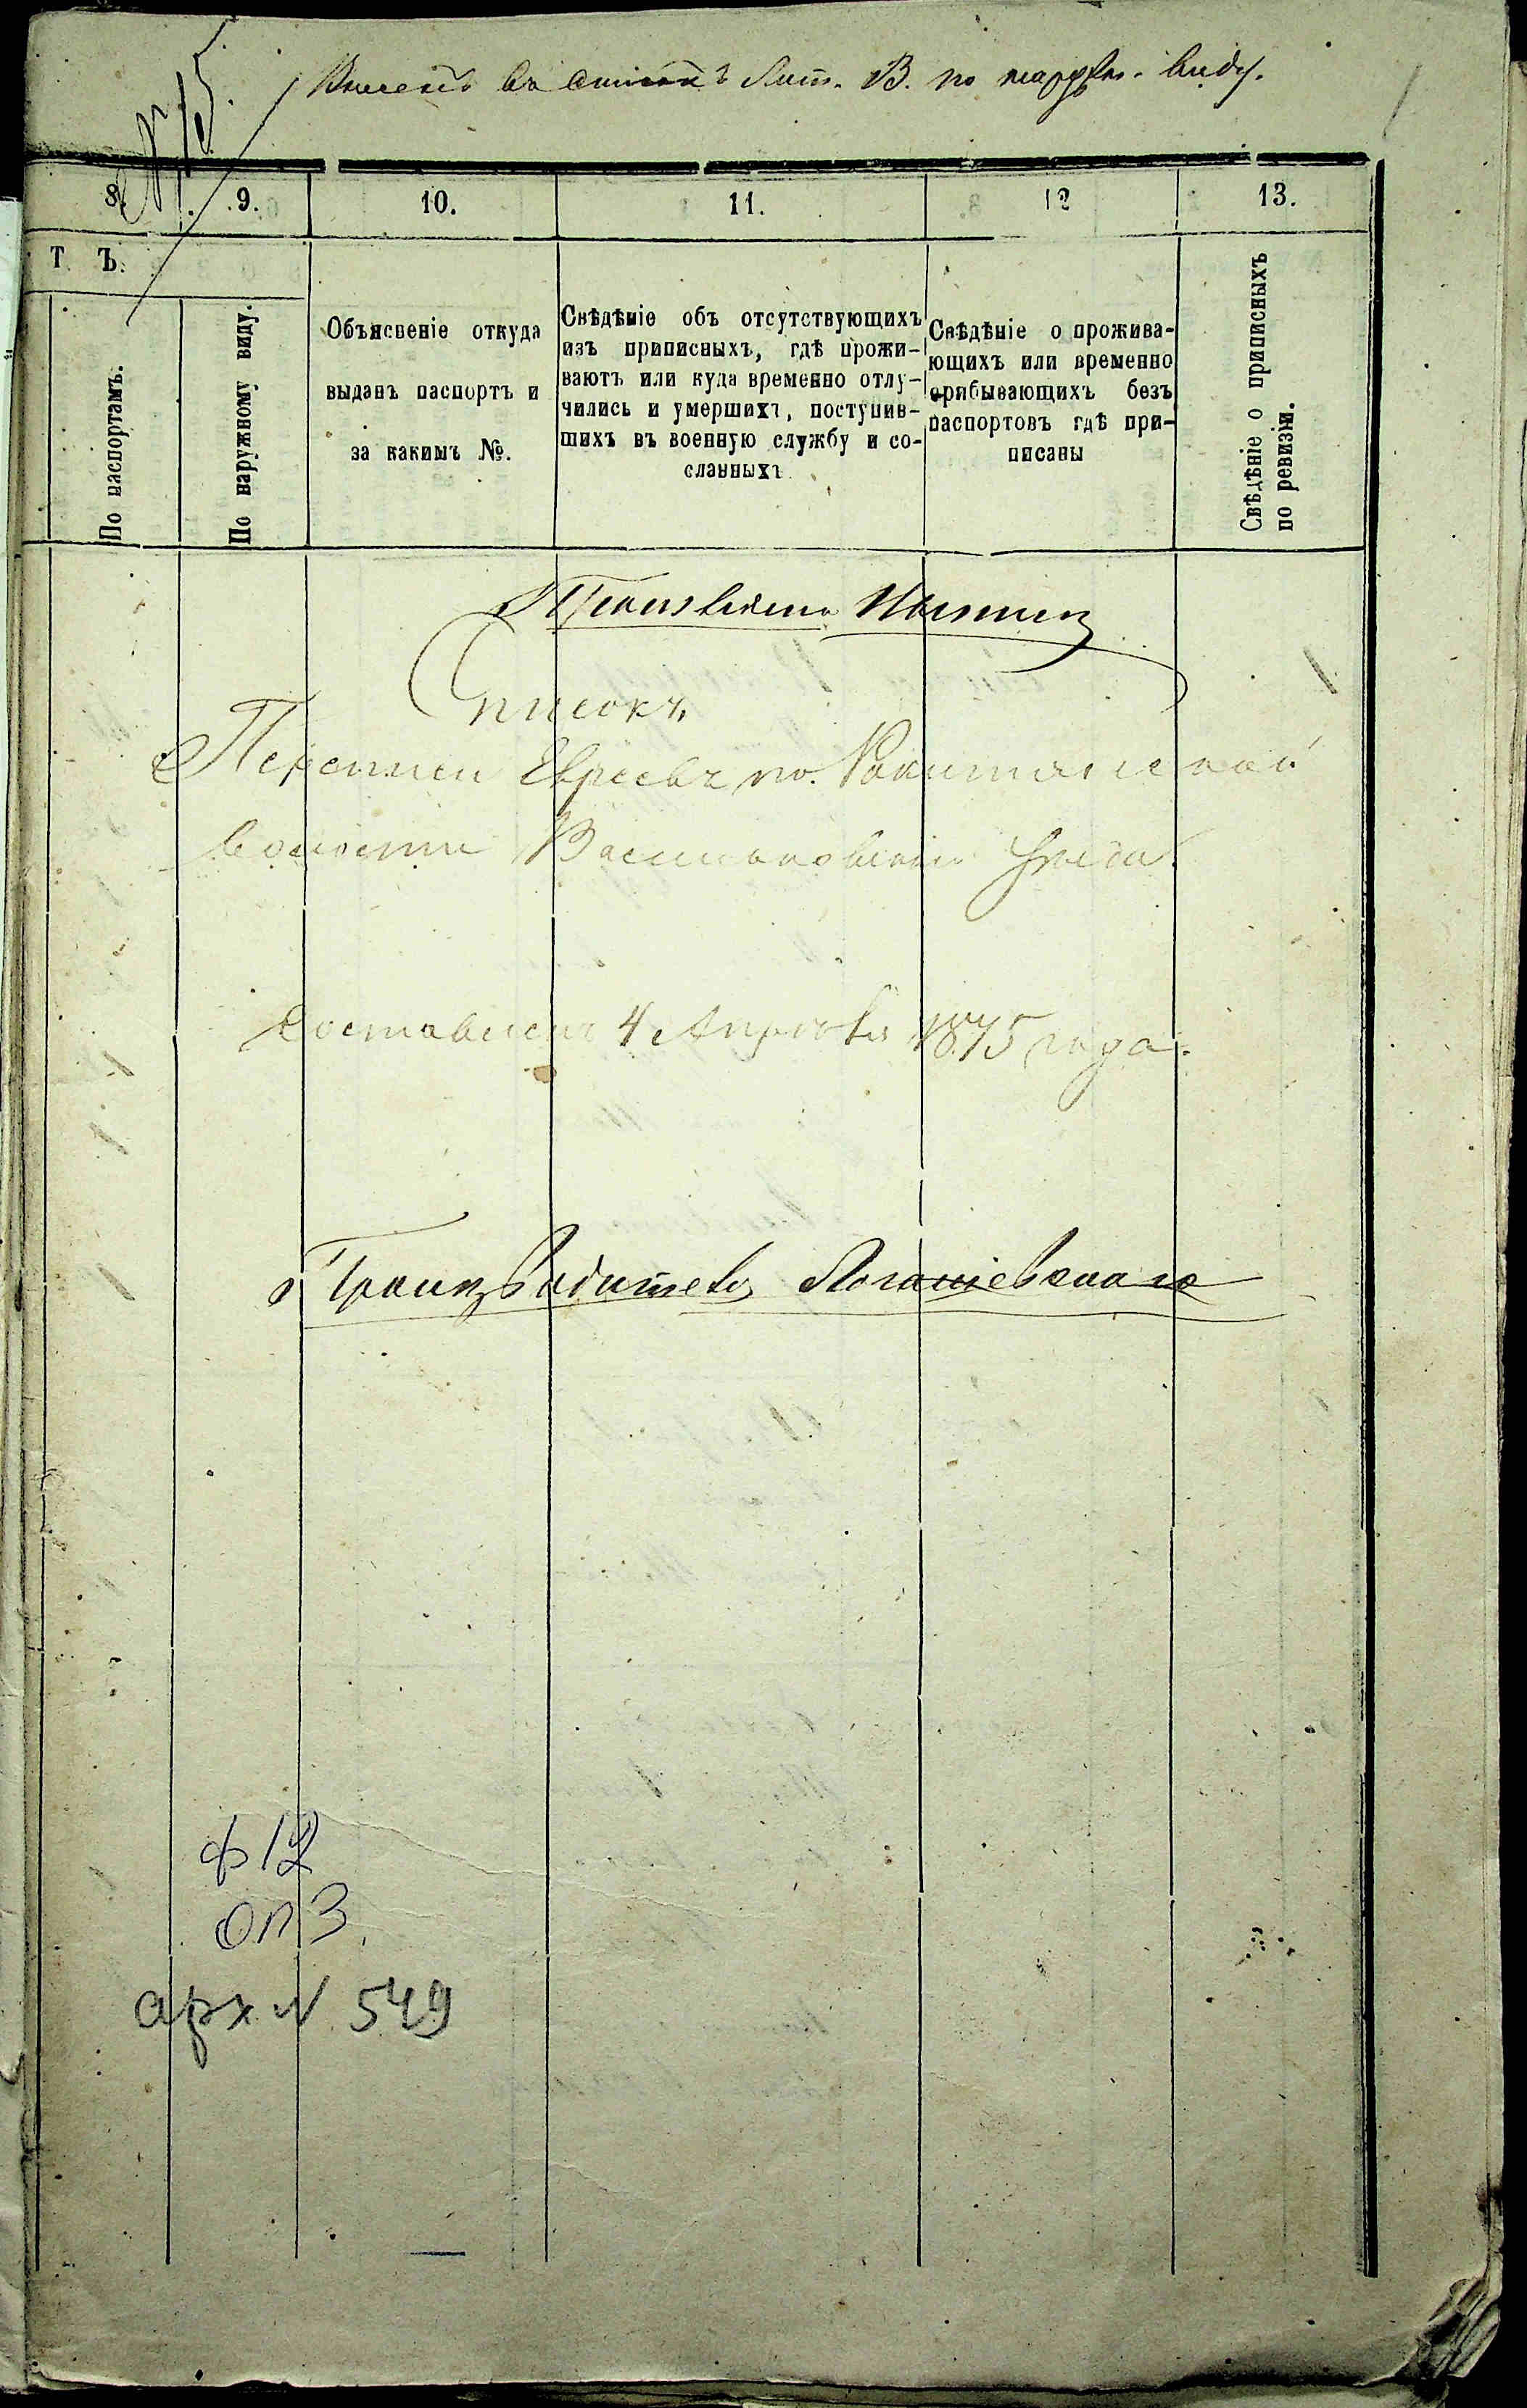 № 15.
въ списокъ Лит. В. по наружн. виду.
8. 9. 10. 11. 12 13.
Т Ъ.
По паспортамъ.
По наружному виду.
Объясненіе откуда
выданъ паспортъ и
за какимъ №.
Свѣдѣніе объ отсутствующихъ
изъ приписныхъ, гдѣ прожи-
ваютъ или куда временно отлу-
чились и умершихъ, поступив-
шихъ въ военную службу и со-
сланныхъ
Свѣдѣніе о прожива-
ющихъ или временно
прибывающихъ безъ
паспортовъ гдѣ при-
писаны
Свѣдѣніе о приписныхъ
по ревизіи.
Списокъ
Переписи Евреевъ по Ракитянской
волости Васильковскаго уезда
Составленъ 4 Апреля 1875 года.
Производитель
ф 12
оп 3
арх N 549